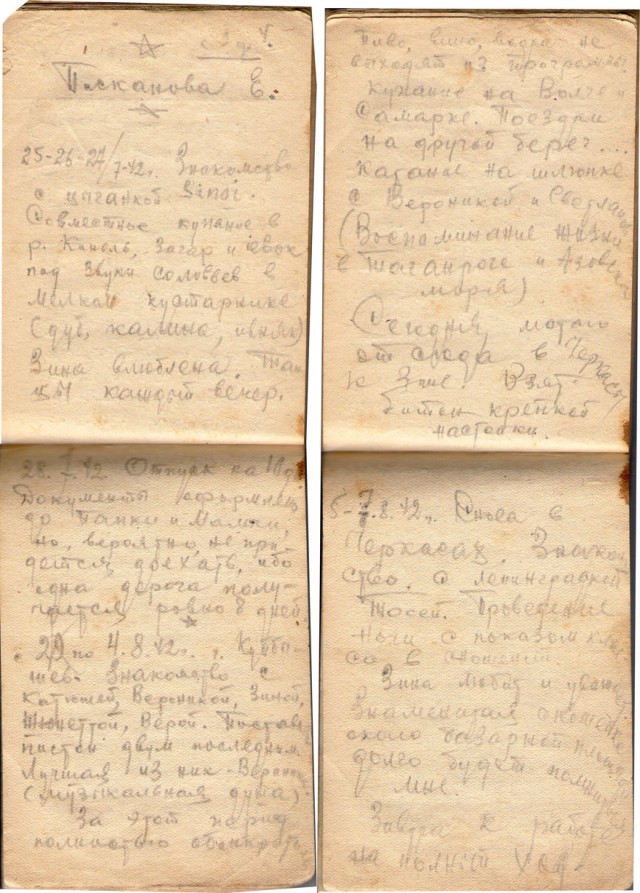 Плеханова Е.
25-26-27/7-42г. Знакомство
с цыганкой Зиной.
Совместное купание в
р. Кинель, Загар и
под звуки соловьев в
мелком кустарнике
(дуб, калина, ивняк)
Зина влюблена. Тан
цы каждый вечер.
28.7.42 Отпуск на 10 д.
Документы оформлены
до Танки и Мамы,
но, вероятно, не при-
дется доехать, ибо
одна дорога полу-
чается ровно 8 дней
29 по 4.8.42г. г. Куйбы-
шев. Знакомство с
Катюшей, Вероникой, Зиной,
Жанеттой, Верой. Постав
пистон двум последним.
Лучшая из них - Вероника
(музыкальная душа)
За этот период
полностью
Пиво, вино, водка не
выходят из программы.
Купание на Волге и
Самарке. Поездки
на другой берег...
Катание на шлюпке
с Вероникой и Светланой
(Воспоминание жизни
в Таганроге и Азовском
моря)
Сегодня, мотаю
отсюда в Черкассы
к Зине. Взят
битон крепкой
настойки.
5-7.8.42г. Снова в
Черкасах. Знаком
ство с ленинградкой
Тосей. Проведение
ночи с показом
са в
Зина любит и уважает.
Знаменитая скамейка
около базарной площади
долго будет помниться
мне.
Завтра к работе
на полный ход.